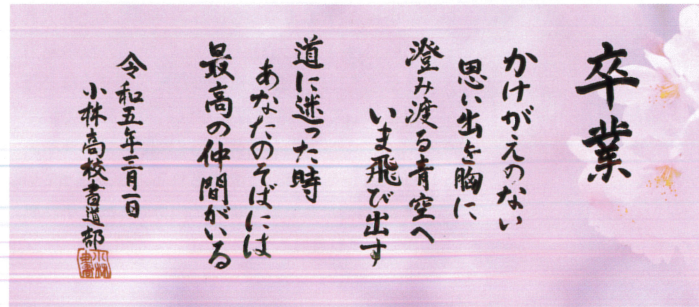 卒業
かけがえのない
思い出を胸に
澄み渡る青空へ
いま飛び出す
道に迷った時
あなたのそばには
最高の仲間がいる
令和五年三月一日
小林高校書道部